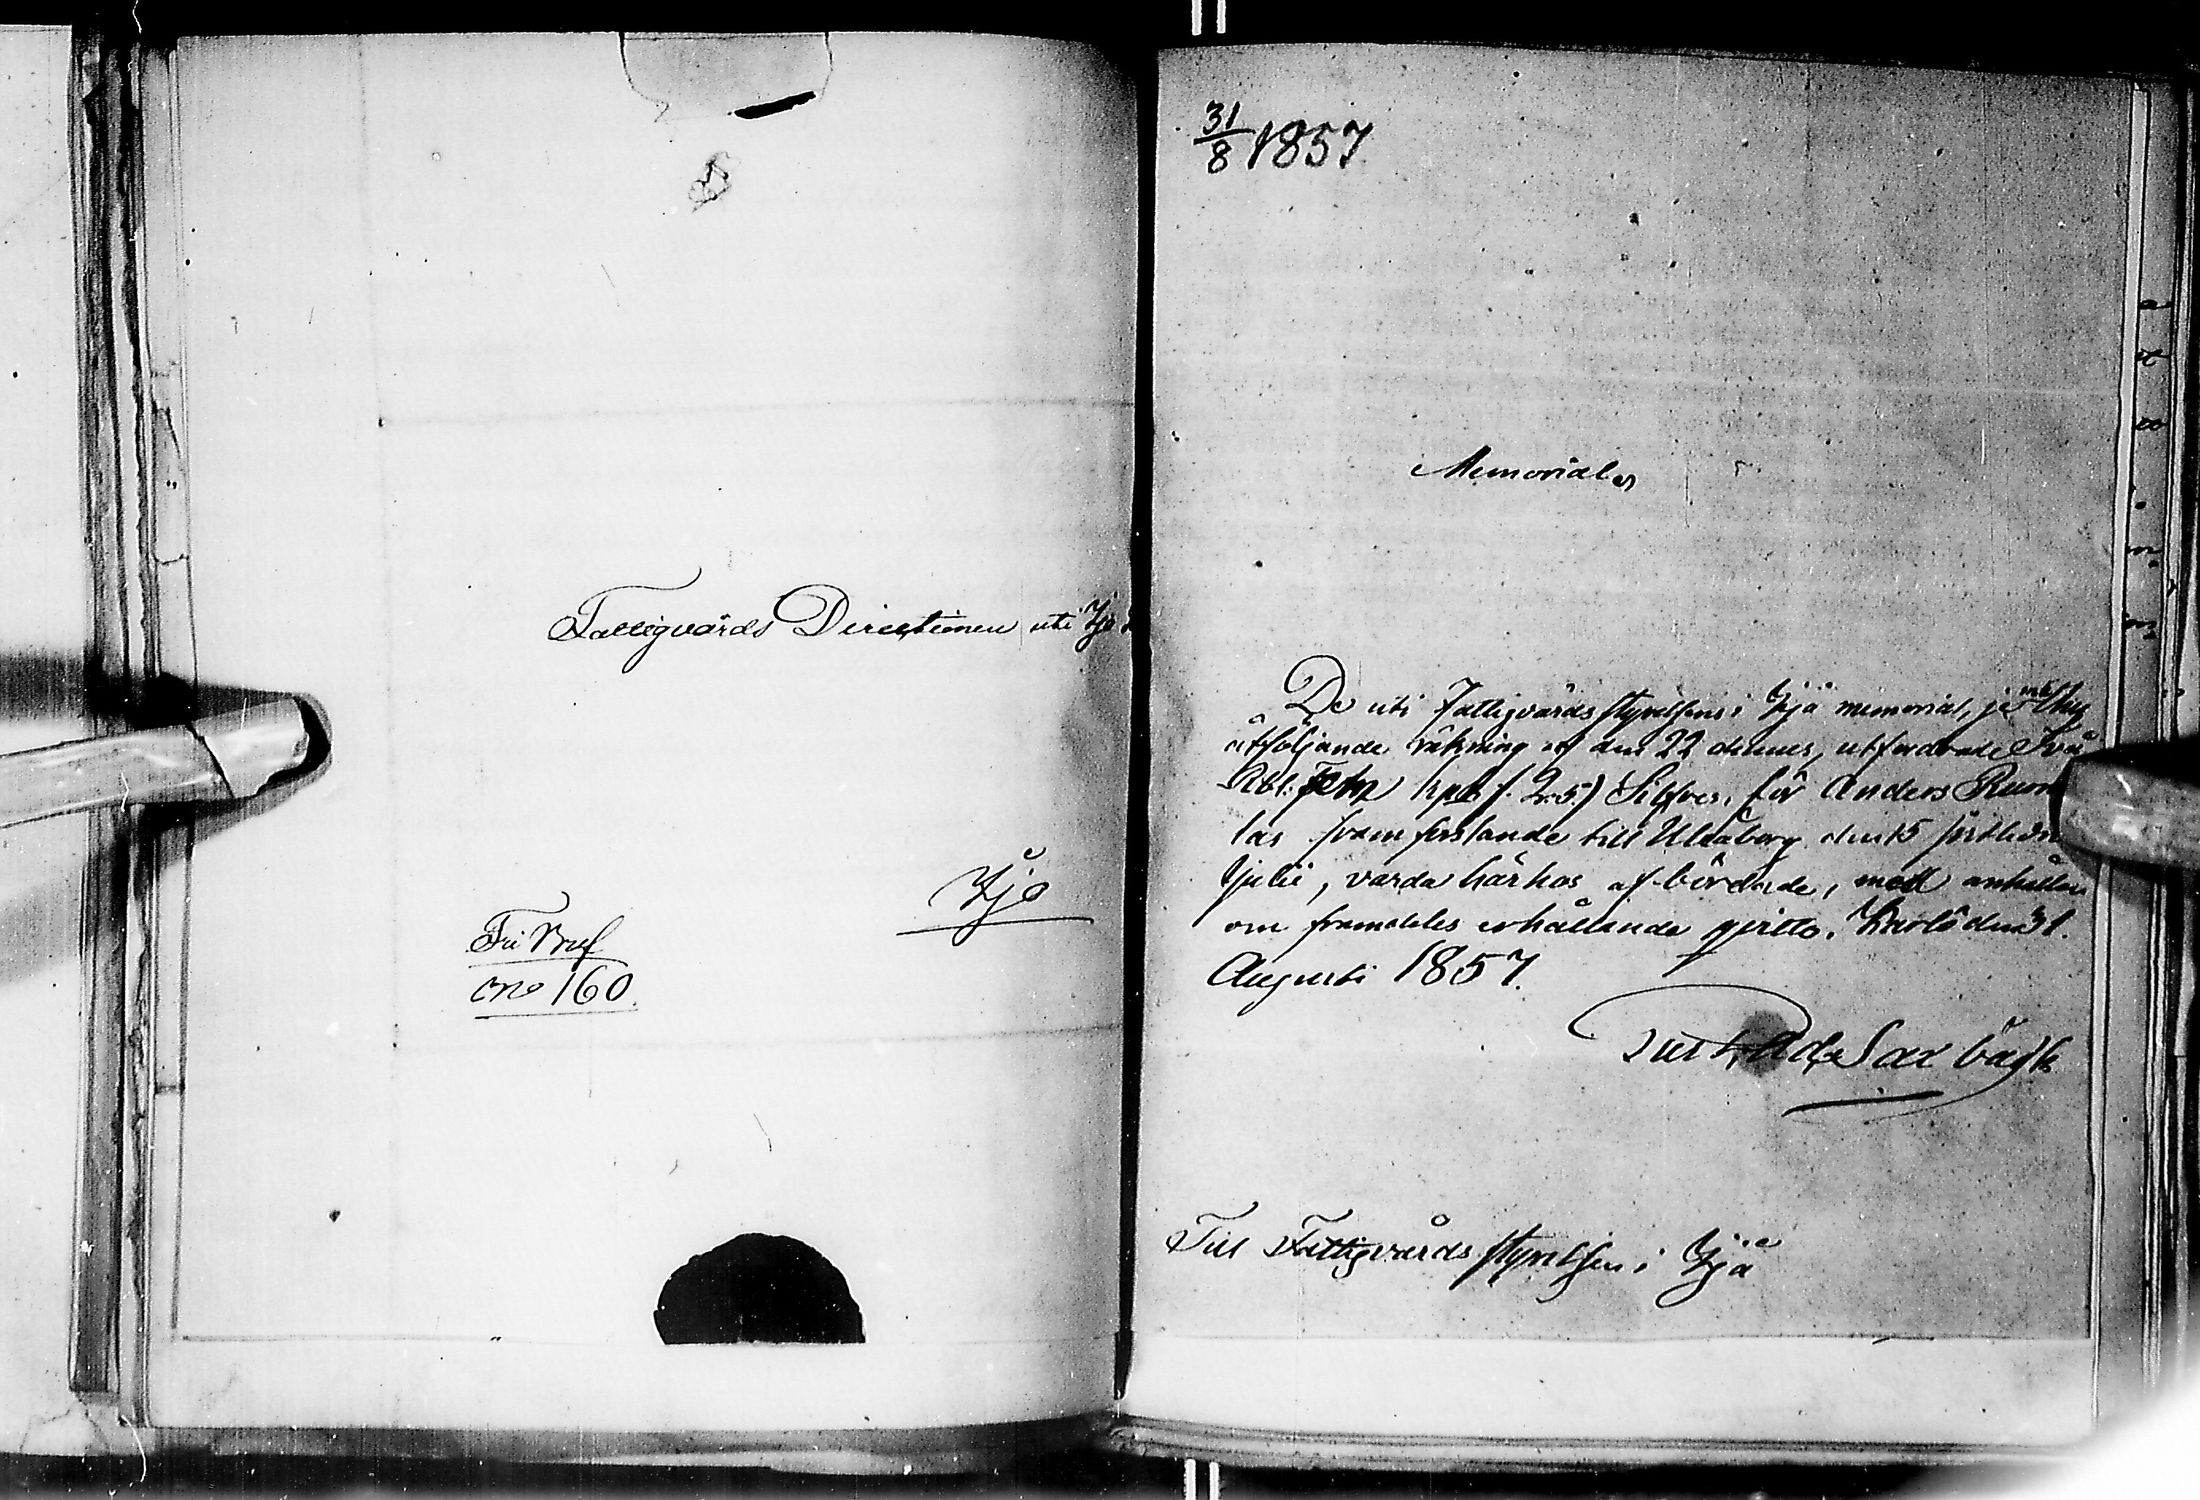 Fattigvårds Directionen uti Ijo
Ijo
Fri Bref
No 160
31/8 1857.
Memorial
De uti Fattigvårds styrelsens i Ijå memorial, jemte
åtföljande räkning af den 22 dennes, utfordrade Två
Rbl. Fem kpk (2.5.) Silfver, för Anders
las framforslande till Uleåborg den 15 sistledne
Julii, varda härhos af-bördade, med anhållan
om framdeles erhållande qvitto. Karlö den 31.
Augusti 1857.
Gust. Ad. Saxbäck
Till Fattigvårds styrelsen i Ijå